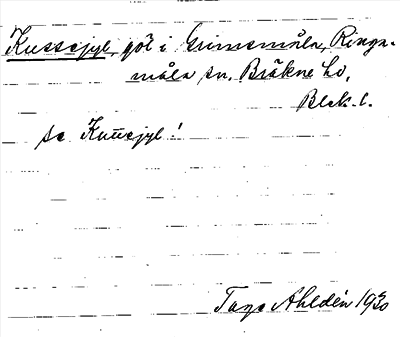 Kussejyl, göl i Grimsmåla, Ringa-
måla sn. Bräkne hd,
Blek. l.
se Kussejyl!
Tage Ahldén 1930